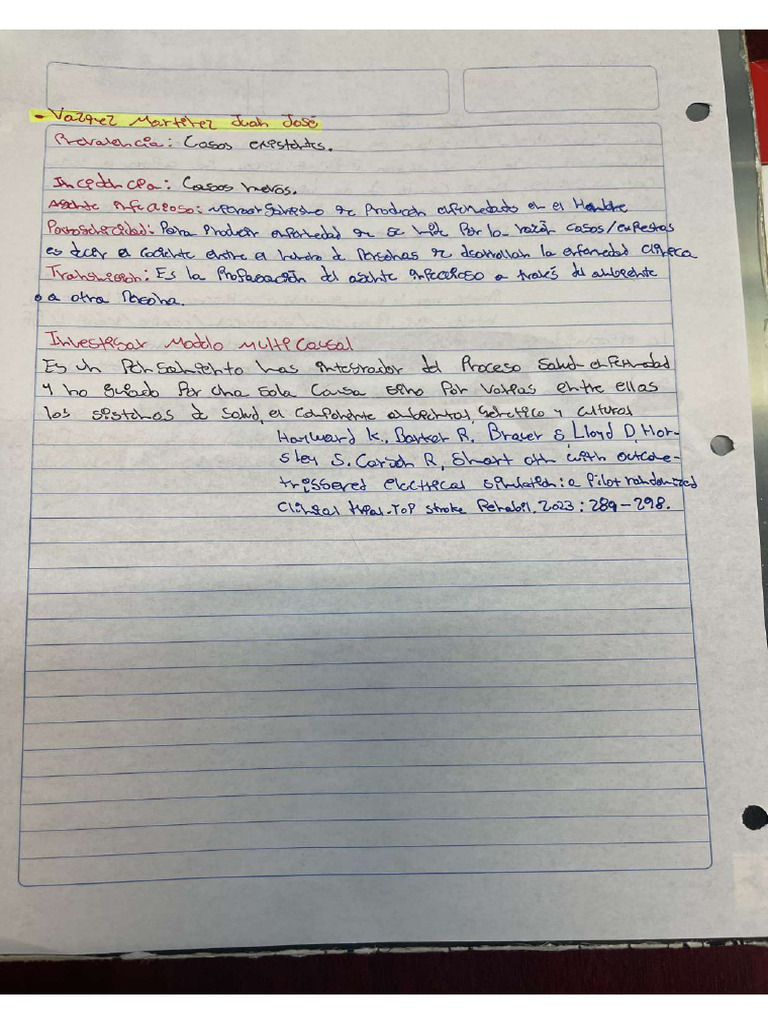 - Vazquez Martinez Juan José
Prevalencia: Casos existentes.
Incidencia: Casos nuevos.
Agente infeccioso: microorganismo q Producen enfermedades en el Hombre
Patogenicidad: Para Producir enfermedad q se mide Por la razón casos/expuestos
es decir el cociente entre el número de Personas q desarrollan la enfermedad clínica
Transmisión: Es la Propagación del agente infeccioso a través del ambiente
o a otra Persona.
Investigar Modelo Multicausal
Es un Pensamiento mas integrador del Proceso salud enfermedad
y no guiado Por una sola Causa sino Por varias entre ellas
los sistemas de salud, el componente ambiental, genetico y cultural
Harward K., Barker R, Brauer S, Lloyd D, Hor-
sley S. Carson R, Smart with outcome-
triggered electrical simulation: a Pilot randomized
Clinical trial. Top stroke Rehabil. 2023: 289-298.